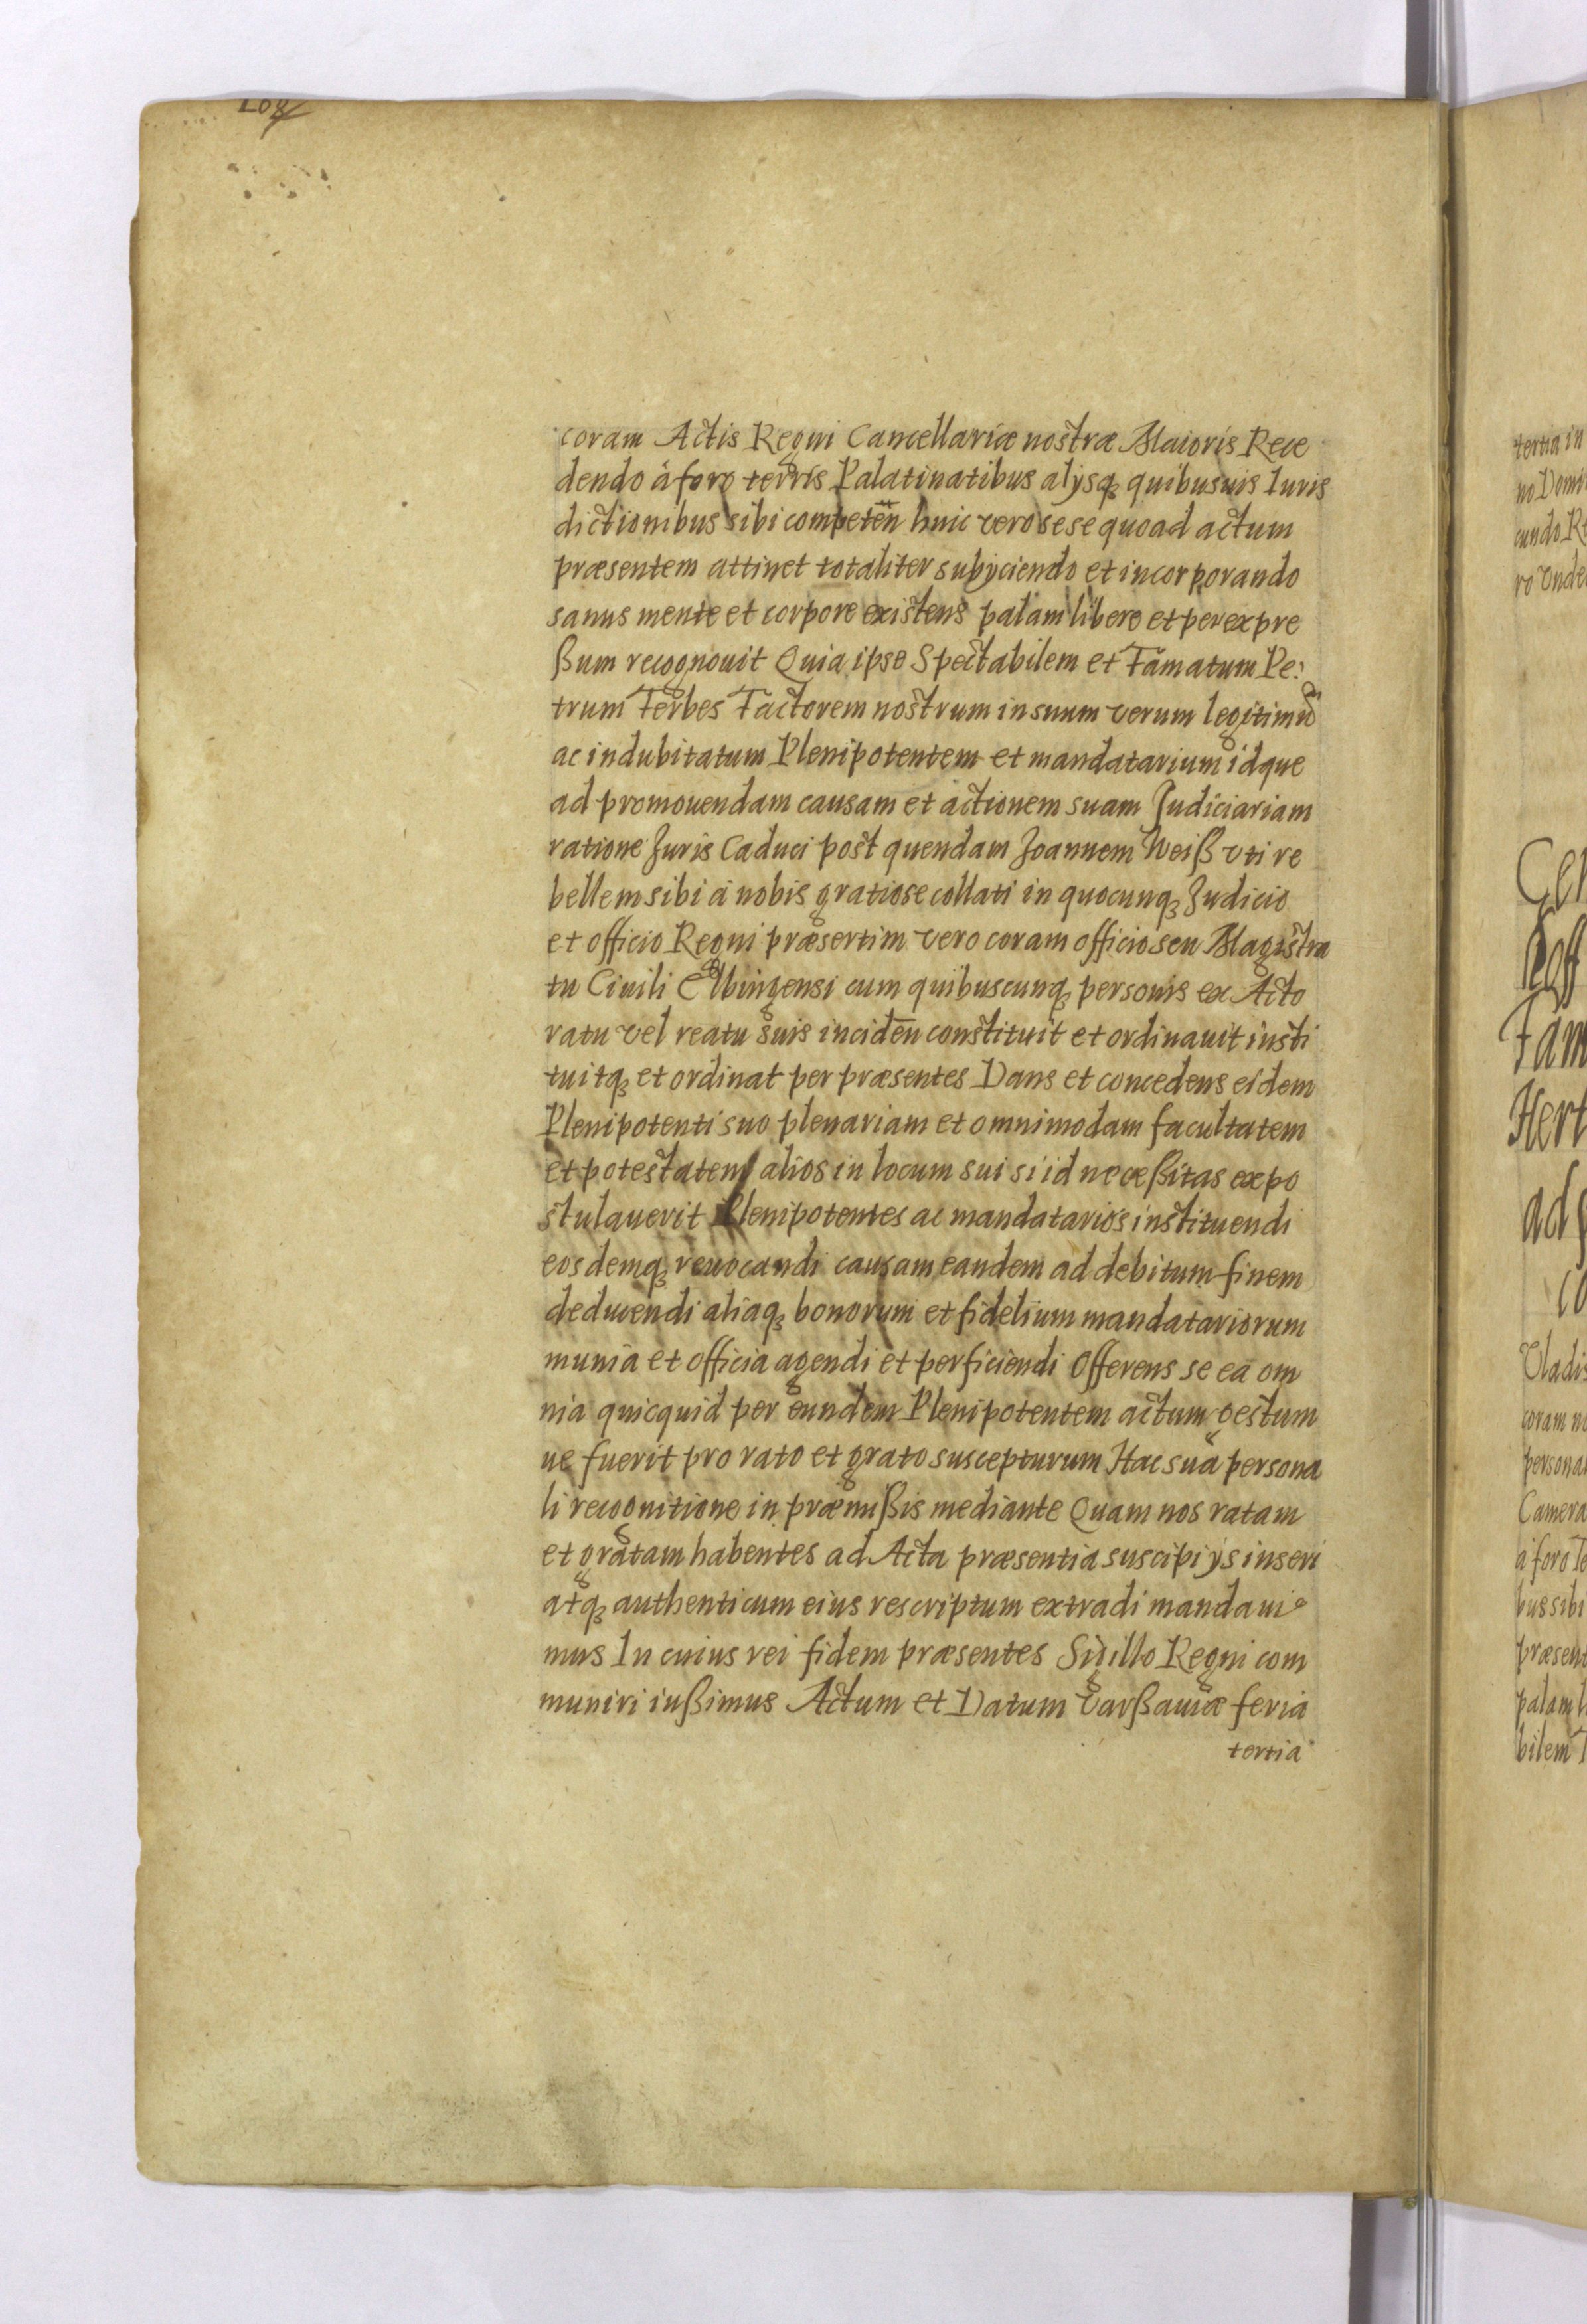 108
coram Actis Regni Cancellariæ nostræ Maioris Rece
dendo à foro terris Palatinatibus alijsq₃ quibusuis Iuris
dictionibus sibi competen̄ huic vero sese quoad actum
præsentem attinet totaliter subijciendo et incorporando
sanus mente et corpore existens palam libere et per expre
ßum recognouit Quia ipse Spectabilem et Famatum Pe:
trum Ferbes Factorem nostrum in suum verum legitimū
ac indubitatum Plenipotentem et mandatarium idque
ad promouendam causam et actionem suam Judiciariam
ratione Juris Caduci post quendam Joannem Weiß vti re
bellem sibi à nobis gratiose collati in quocunq₃ Judicio
et officio Regni præsertim vero coram officio seu Magistra
tu Ciuili Elbingensi cum quibuscunq₃ personis ex Acto
ratu vel reatu suis inciden̄ constituit et ordinauit insti
tuitq₃ et ordinat per præsentes Dans et concedens eidem
Plenipotenti suo plenariam et omnimodam facultatem
et potestatem alios in locum sui si id neceßitas expo
stulauerit Plenipotentes ac mandatarios instituendi
eosdemq₃ reuocandi causam eandem ad debitum finem
deducendi aliaq₃ bonorum et fidelium mandatariorum
munia et officia agendi et perficiendi Offerens se ea om
nia quicquid per eundem Plenipotentem actum gestum
ue fuerit pro rato et grato suscepturum Hac sua persona
li recognitione in præmißis mediante Quam nos ratam
et gratam habentes ad Acta præsentia suscipi ijs inseri
atq₃ authenticum eius rescriptum extradi mandaui
mus In cuius rei fidem præsentes Sigillo Regni com
muniri iußimus Actum et Datum Varßauiæ feria
tertia
tertia in
no Domi
cundo Re
ro Vnde
Cer
Fam
Hert
ad
co
Vladis
coram no
persona
Camera
à foro Te
bus sibi
præsent
palam l
bilem